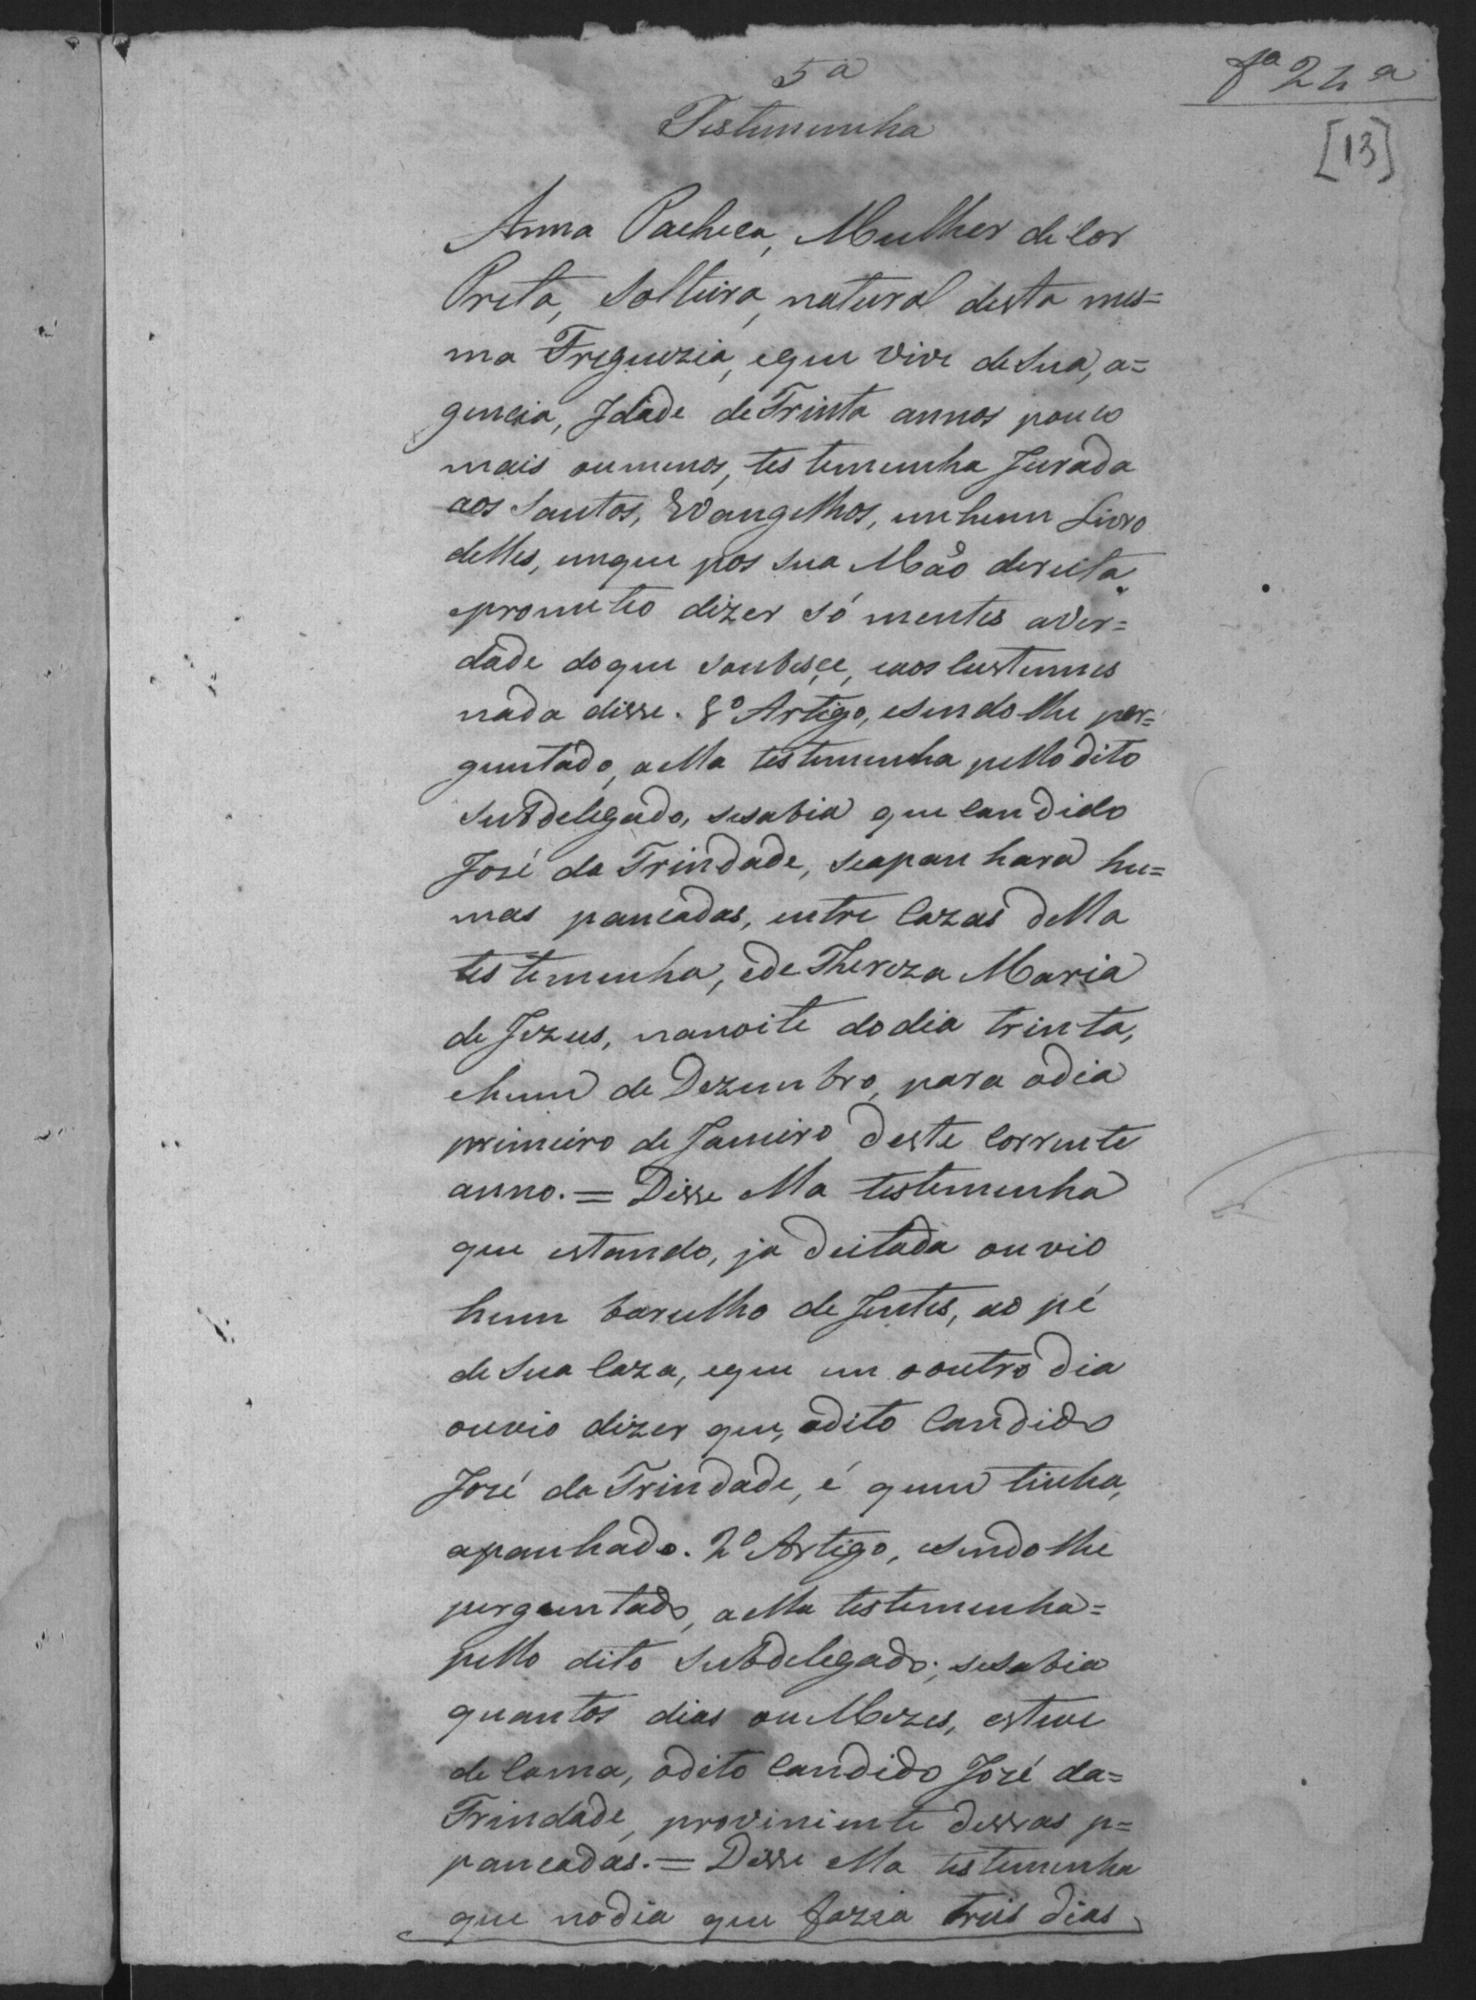 5a
Testemunha
fa 24 a
[13]
Anna Pacheca, Mulher de Cor
Preta, Solteira, natural desta mes=
ma Freguezia, eque vive de Sua, a=
gencia, Idade de Trinta annos pouco
mais oumenos, testemunha Jurada
aos Santos, Evangelhos, emhum Livro
delles, emque pos sua Mão dereita,
eprometeo dizer só mentes aver=
dade doque soubesçe, eaos Custumes
nada disse. 1º Artigo, esendolhe per=
guntado, aella testemunha pello dito
Subdelegado, sesabia que Candido
José da Trindade, seapanhara hu=
mas pancadas, entre Cazas della
testemunha, ede Thereza Maria
de Jezus, nanoite dodia trinta,
ehum de Dezembro, para odia
primeiro de Janeiro deste Corrente
anno. = Disse ella testemunha
que estando, ja deitada ouvio
hum barulho de Jentes, ao pé
de Sua Caza, eque em ooutro dia
ouvio dizer que, odito Candido
José da Trindade, é quem tinha,
apanhado. 2º Artigo, esendolhe
perguntado, aella testemunha=
pello dito Subdelegado; sesabia
quantos dias ou Mezes, esteve
de Cama, odito Candido José da=
Trindade, proviniente dessas p=
pancadas. = Disse ella testemunha
que nodia que fazia treis dias